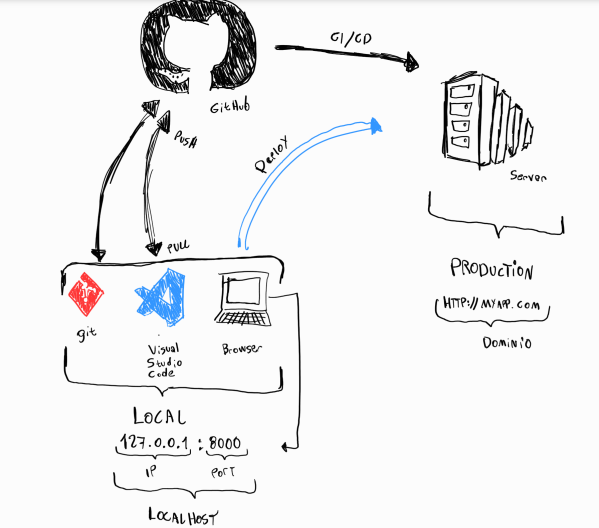 CI/CD
GitHub
PUSH
Deploy
Server
PULL
PRODUCTION
HTTP://MYAPP.COM
DOMINIO
git
Visual
Studio
Code
Browser
LOCAL
127.0.0.1 : 8000
IP
PORT
LOCALHOST